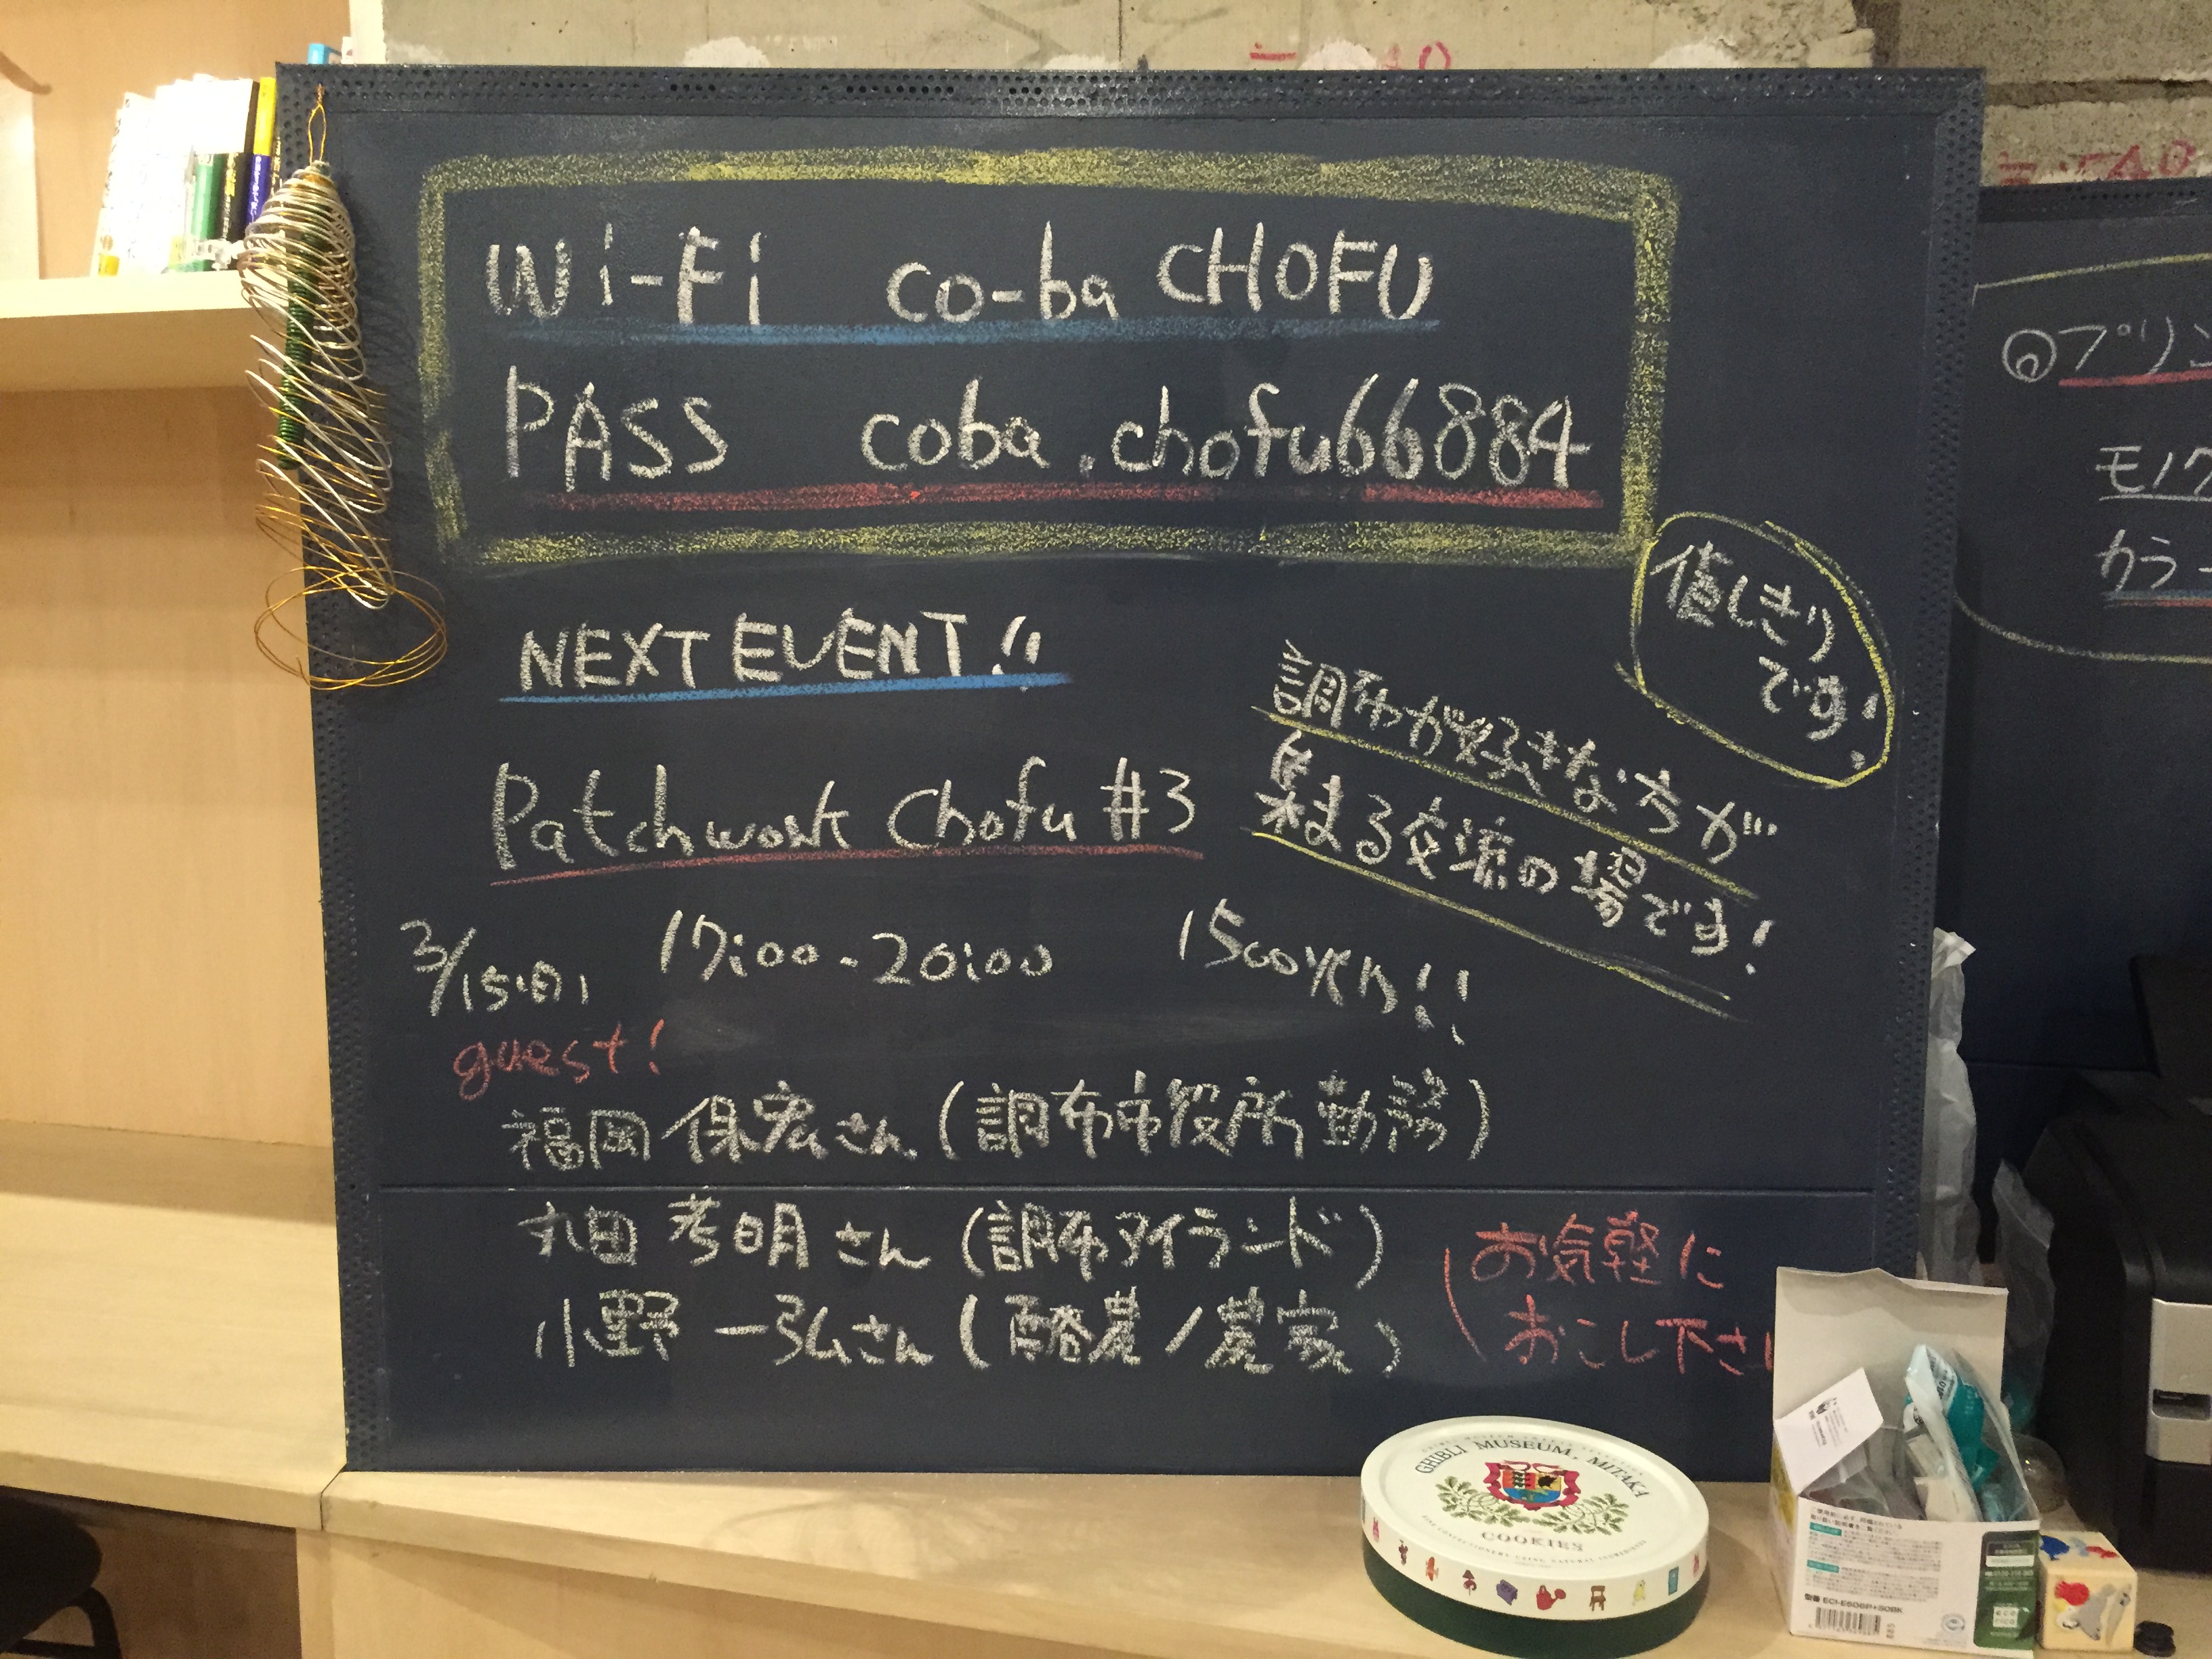 Wi-Fi co-ba CHOFU
PASS coba.chofu66884
NEXT EVENT!!
値しきりです!
調布が好きな方が
集まる交流の場です!
Patchwork Chofu #3
3/15(日) 17:00-20:00 1500yen!!
guest!
福岡 保宏さん (調布市役所 勤務)
丸田 孝明さん (調布アイランド)
小野 一弘さん (酪農/農家)
お気軽に
おこし下さ
プリン
モノク
カラー
GHIBLI MUSEUM, MITAKA
COOKIES
型番 ECI-E50BP+50BK